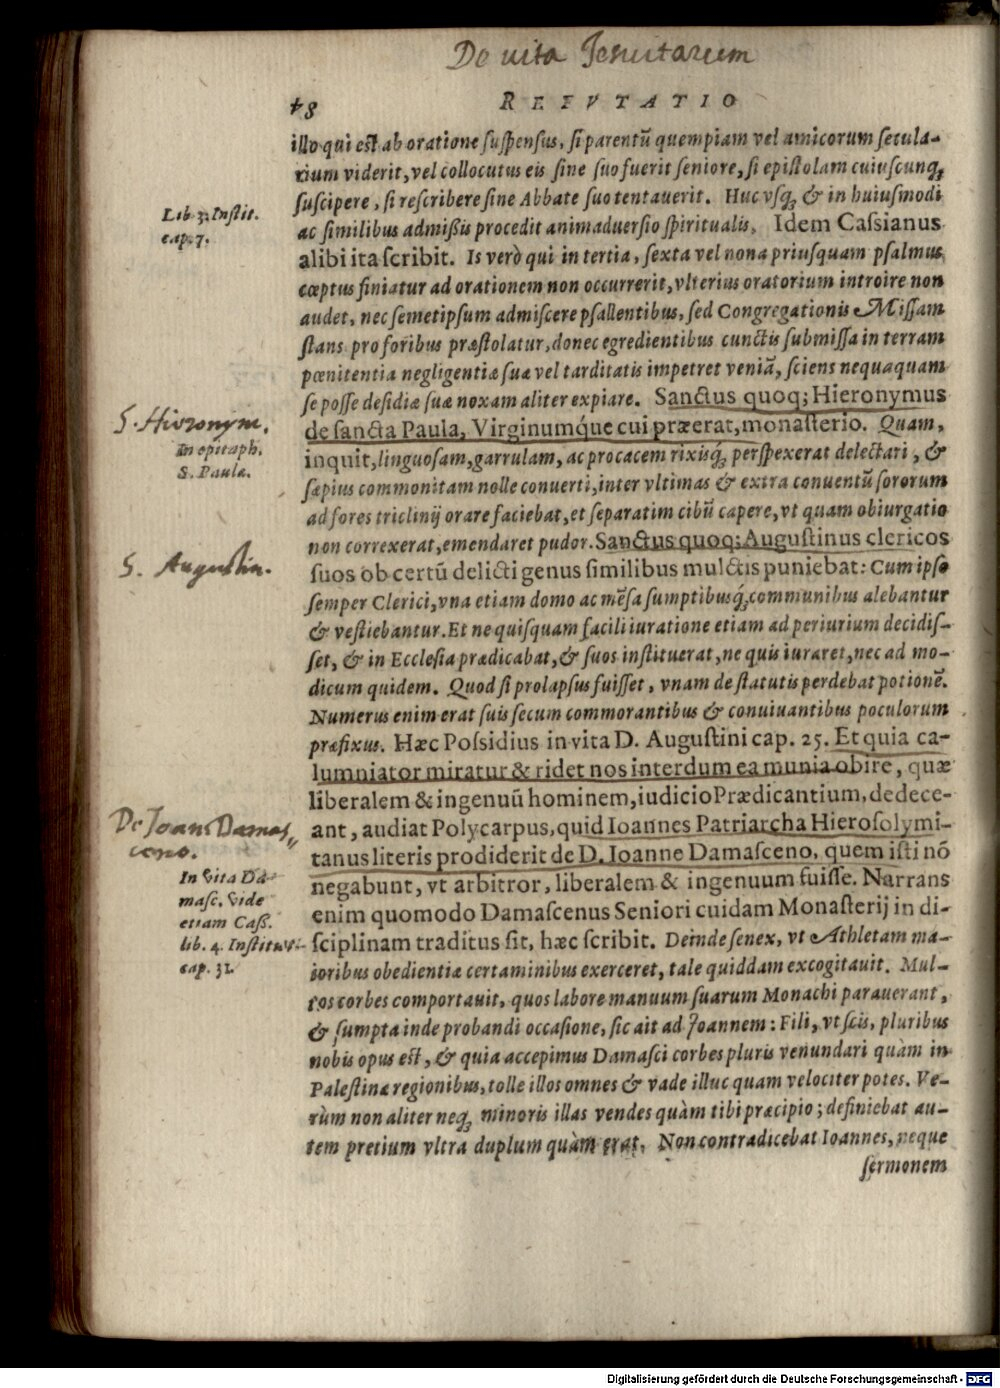 De vita Jesuitarum
48
REFVTATIO
illo qui est ab oratione suspensus, si parentũ quempiam vel amicorum secula-
rium viderit, vel collocutus eis sine suo fuerit seniore, si epistolam cuiuscunq;
suscipere, si rescribere sine Abbate suo tentauerit. Huc vsq; & in huiusmodi
Lib. 3. Instit.
ac similibus admißis procedit animaduersio spiritualis. Idem Cassianus
cap. 7.
alibi ita scribit. Is verò qui in tertia, sexta vel nona priusquam psalmus
cœptus finiatur ad orationem non occurrerit, vlterius oratorium introire non
audet, nec semetipsum admiscere psallentibus, sed Congregationis Missam
stans pro foribus præstolatur, donec egredientibus cunctis submissa in terram
pœnitentia negligentiæ suæ vel tarditatis impetret veniã, sciens nequaquam
se posse desidiæ suæ noxam aliter expiare. Sanctus quoq; Hieronymus
S. Hieronym.
de sancta Paula, Virginumq́ue cui præerat, monasterio. Quam,
In epitaph.
inquit, linguosam, garrulam, ac procacem rixisq́; perspexerat delectari, &
S. Paulæ.
sæpius commonitam nolle conuerti, inter vltimas & extra conuentũ sororum
ad fores triclinij orare faciebat, et separatim cibũ capere, vt quam obiurgatio
non correxerat, emendaret pudor. Sanctus quoq; Augustinus clericos
S. Augustin.
suos ob certũ delicti genus similibus mulctis puniebat: Cum ipso
semper Clerici, vna etiam domo ac mẽsa sumptibusq́; communibus alebantur
& vestiebantur. Et ne quisquam facili iuratione etiam ad periurium decidis-
set, & in Ecclesia prædicabat, & suos instituerat, ne quis iuraret, nec ad mo-
dicum quidem. Quod si prolapsus fuisset, vnam de statutis perdebat potionẽ.
Numerus enim erat suis secum commorantibus & conuiuantibus poculorum
præfixus. Hæc Possidius in vita D. Augustini cap. 25. Et quia ca-
lumniator miratur & ridet nos interdum ea munia obire, quæ
liberalem & ingenuũ hominem, iudicio Prædicantium, dedece-
De Joans Damas
ant, audiat Polycarpus, quid Ioannes Patriarcha Hierosolymi-
ceno.
tanus literis prodiderit de D. Ioanne Damasceno, quem isti nõ
In vita Da-
negabunt, vt arbitror, liberalem & ingenuum fuisse. Narrans
masc. vide
enim quomodo Damascenus Seniori cuidam Monasterij in di-
etiam Cass.
lib. 4. Institut.
sciplinam traditus sit, hæc scribit. Deinde senex, vt Athletam ma-
cap. 31.
ioribus obedientiæ certaminibus exerceret, tale quiddam excogitauit. Mul-
tos corbes comportauit, quos labore manuum suarum Monachi parauerant,
& sumpta inde probandi occasione, sic ait ad Joannem: Fili, vt scis, pluribus
nobis opus est, & quia accepimus Damasci corbes pluris venundari quàm in
Palestinæ regionibus, tolle illos omnes & vade illuc quam velociter potes. Ve-
rùm non aliter neq; minoris illas vendes quàm tibi præcipio; definiebat au-
tem pretium vltra duplum quàm erat. Non contradicebat Ioannes, neque
sermonem
Digitalisierung gefördert durch die Deutsche Forschungsgemeinschaft - DFG